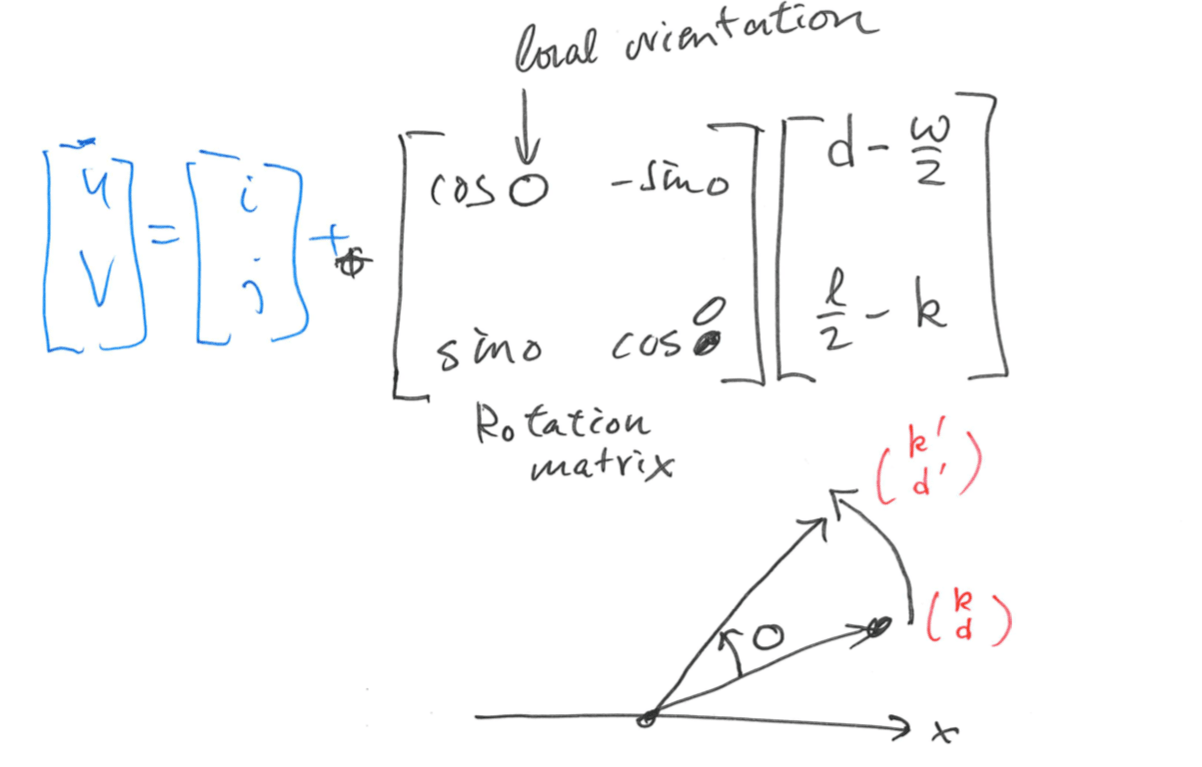 local orientation
[u v] = [i j] + [cos O -sin o sin o cos O] [d - w/2 l/2 - k]
Rotation
matrix
(k' d')
(k d)
O
x